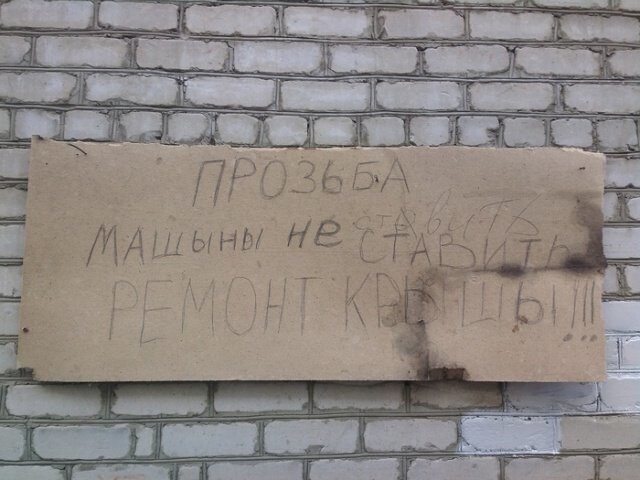 ПРОЗЬБА
ставить
МАШЫНЫ не СТАВИТЬ
РЕМОНТ КРЫШЫ!!!